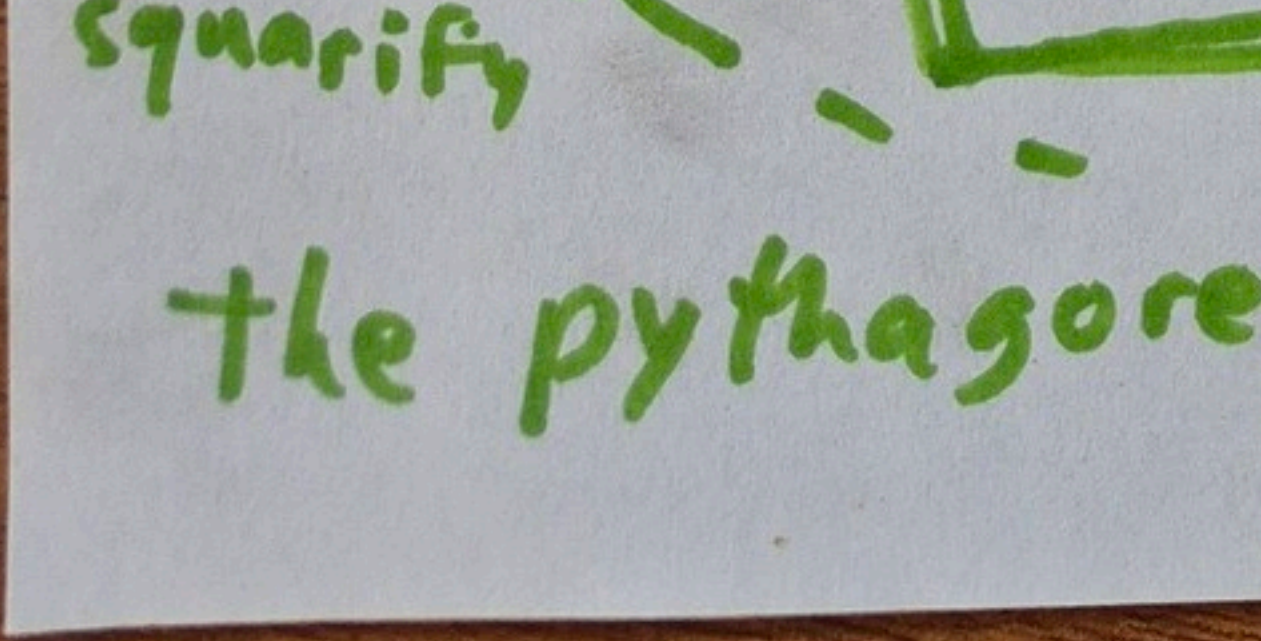 squarify
the pythagore